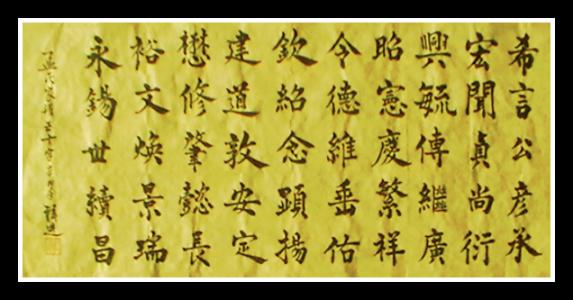 希言公彦承
宏聞貞尚衍
興毓傳繼廣
昭憲慶繁祥
令德維垂佑
欽紹念顕揚
建道敦安定
懋修肇懿長
裕文煥景瑞
永錫世續昌